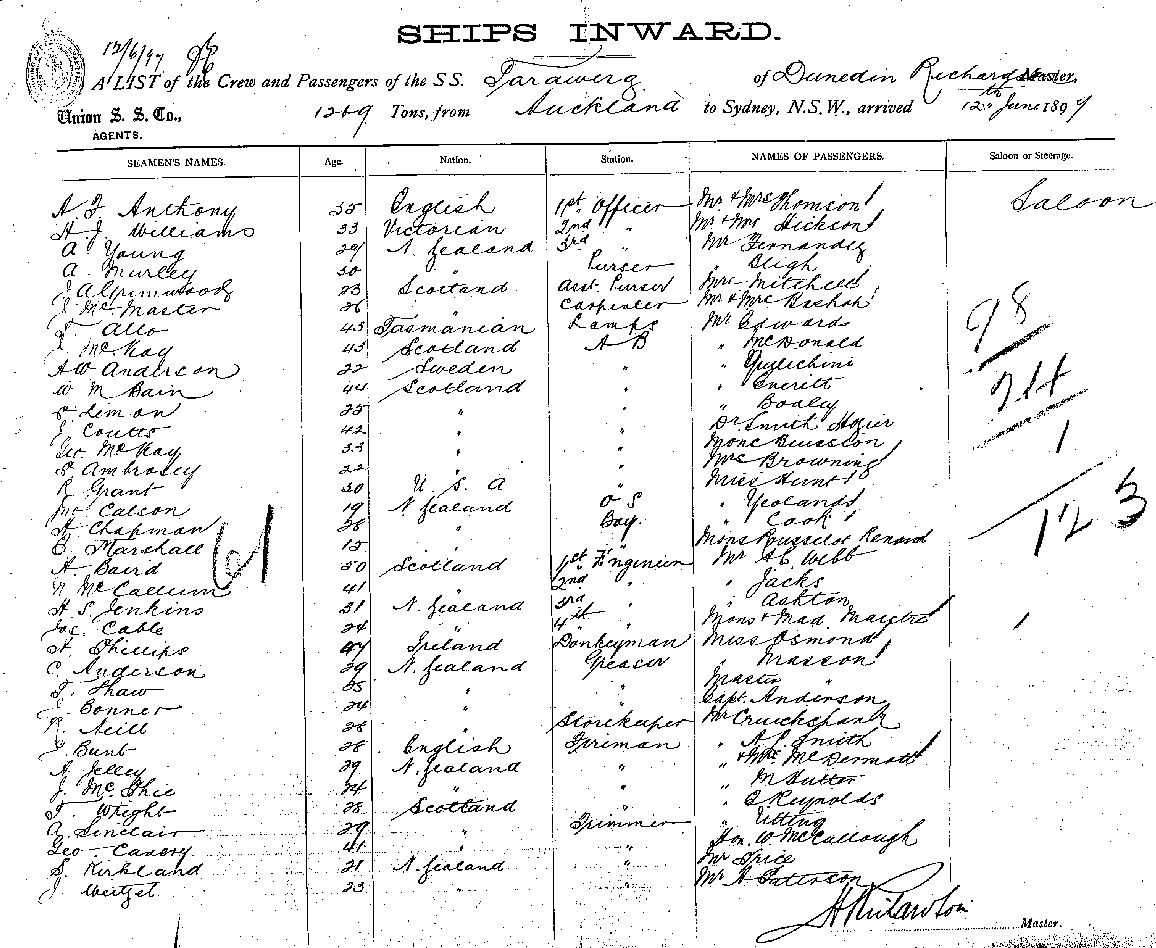 SHIPS INWARD.
12/6/97
A LIST of the Crew and Passengers of the S.S. Tarawera of Dunedin Richardson Master,
Union S. S. Co., 1269 Tons, from Auckland to Sydney, N.S.W., arrived 12th June 1897
AGENTS.
SEAMEN'S NAMES. Age. Nation. Station. NAMES OF PASSENGERS. Saloon or Steerage.
A Anthony 35 English 1st Officer Mr & Mrs Thomson Saloon
H. J. Williams 33 Victorian 2nd " Mr & Mrs Hickson
A Young 29 N. Zealand 3rd " Mr Fernandez
A. Murley 30 " Purser " Bligh
23 Scotland Asst. Purser Mrs Mitchell
J McMaster 26 " Carpenter Mr & Mrs
Allo 45 Tasmanian Lamps Mr Edwards
McKay 43 Scotland A B " McDonald
98
AW Anderson 22 Sweden "
W M Bain 44 Scotland " " Everett
Lemon 25 " " "
214
J Coutts 42 " " Dr Smith
Geo McKay 33 " " Mons
1
Ambrosey 22 " " Mrs Browning
R Grant 30 U. S. A " Miss Hunt
Jno Calson 19 N. Zealand O S " Yeolands
123
H Chapman 26 " Boy. " Cook
Marshall 15 " " Mons Rousselot Renard
61
A. Baird 50 Scotland 1st Engineer Mr Webb
N McCallum 41 " 2nd " " Jacks
H S Jenkins 31 N. Zealand 3rd " " Ashton
Jas. Cable 24 " 4th " Mons & Mad. Maistre
H. Phillips 47 Ireland Donkeyman Miss Osmond
C. Anderson 29 N. Zealand Greaser " Masson
T. Shaw 25 " " Master "
Bonner 24 " " Capt. Anderson
R. Neill 26 " Storekeeper Mr Cruickshank
Bunt 26 English Fireman " Smith
A. Jelley 29 N. Zealand " " & Mrs McDermott
J. McPhie 24 " " " M Sutter
T. Wright 28 Scotland " " C Reynolds
A. Sinclair 29 " Trimmer " Utting
Geo Canery 41 " " Hon. W McCullough
S. Kirkland 21 N. Zealand " Mr Price
J. 23 " " Mr A Patterson
H Richardson
Master.